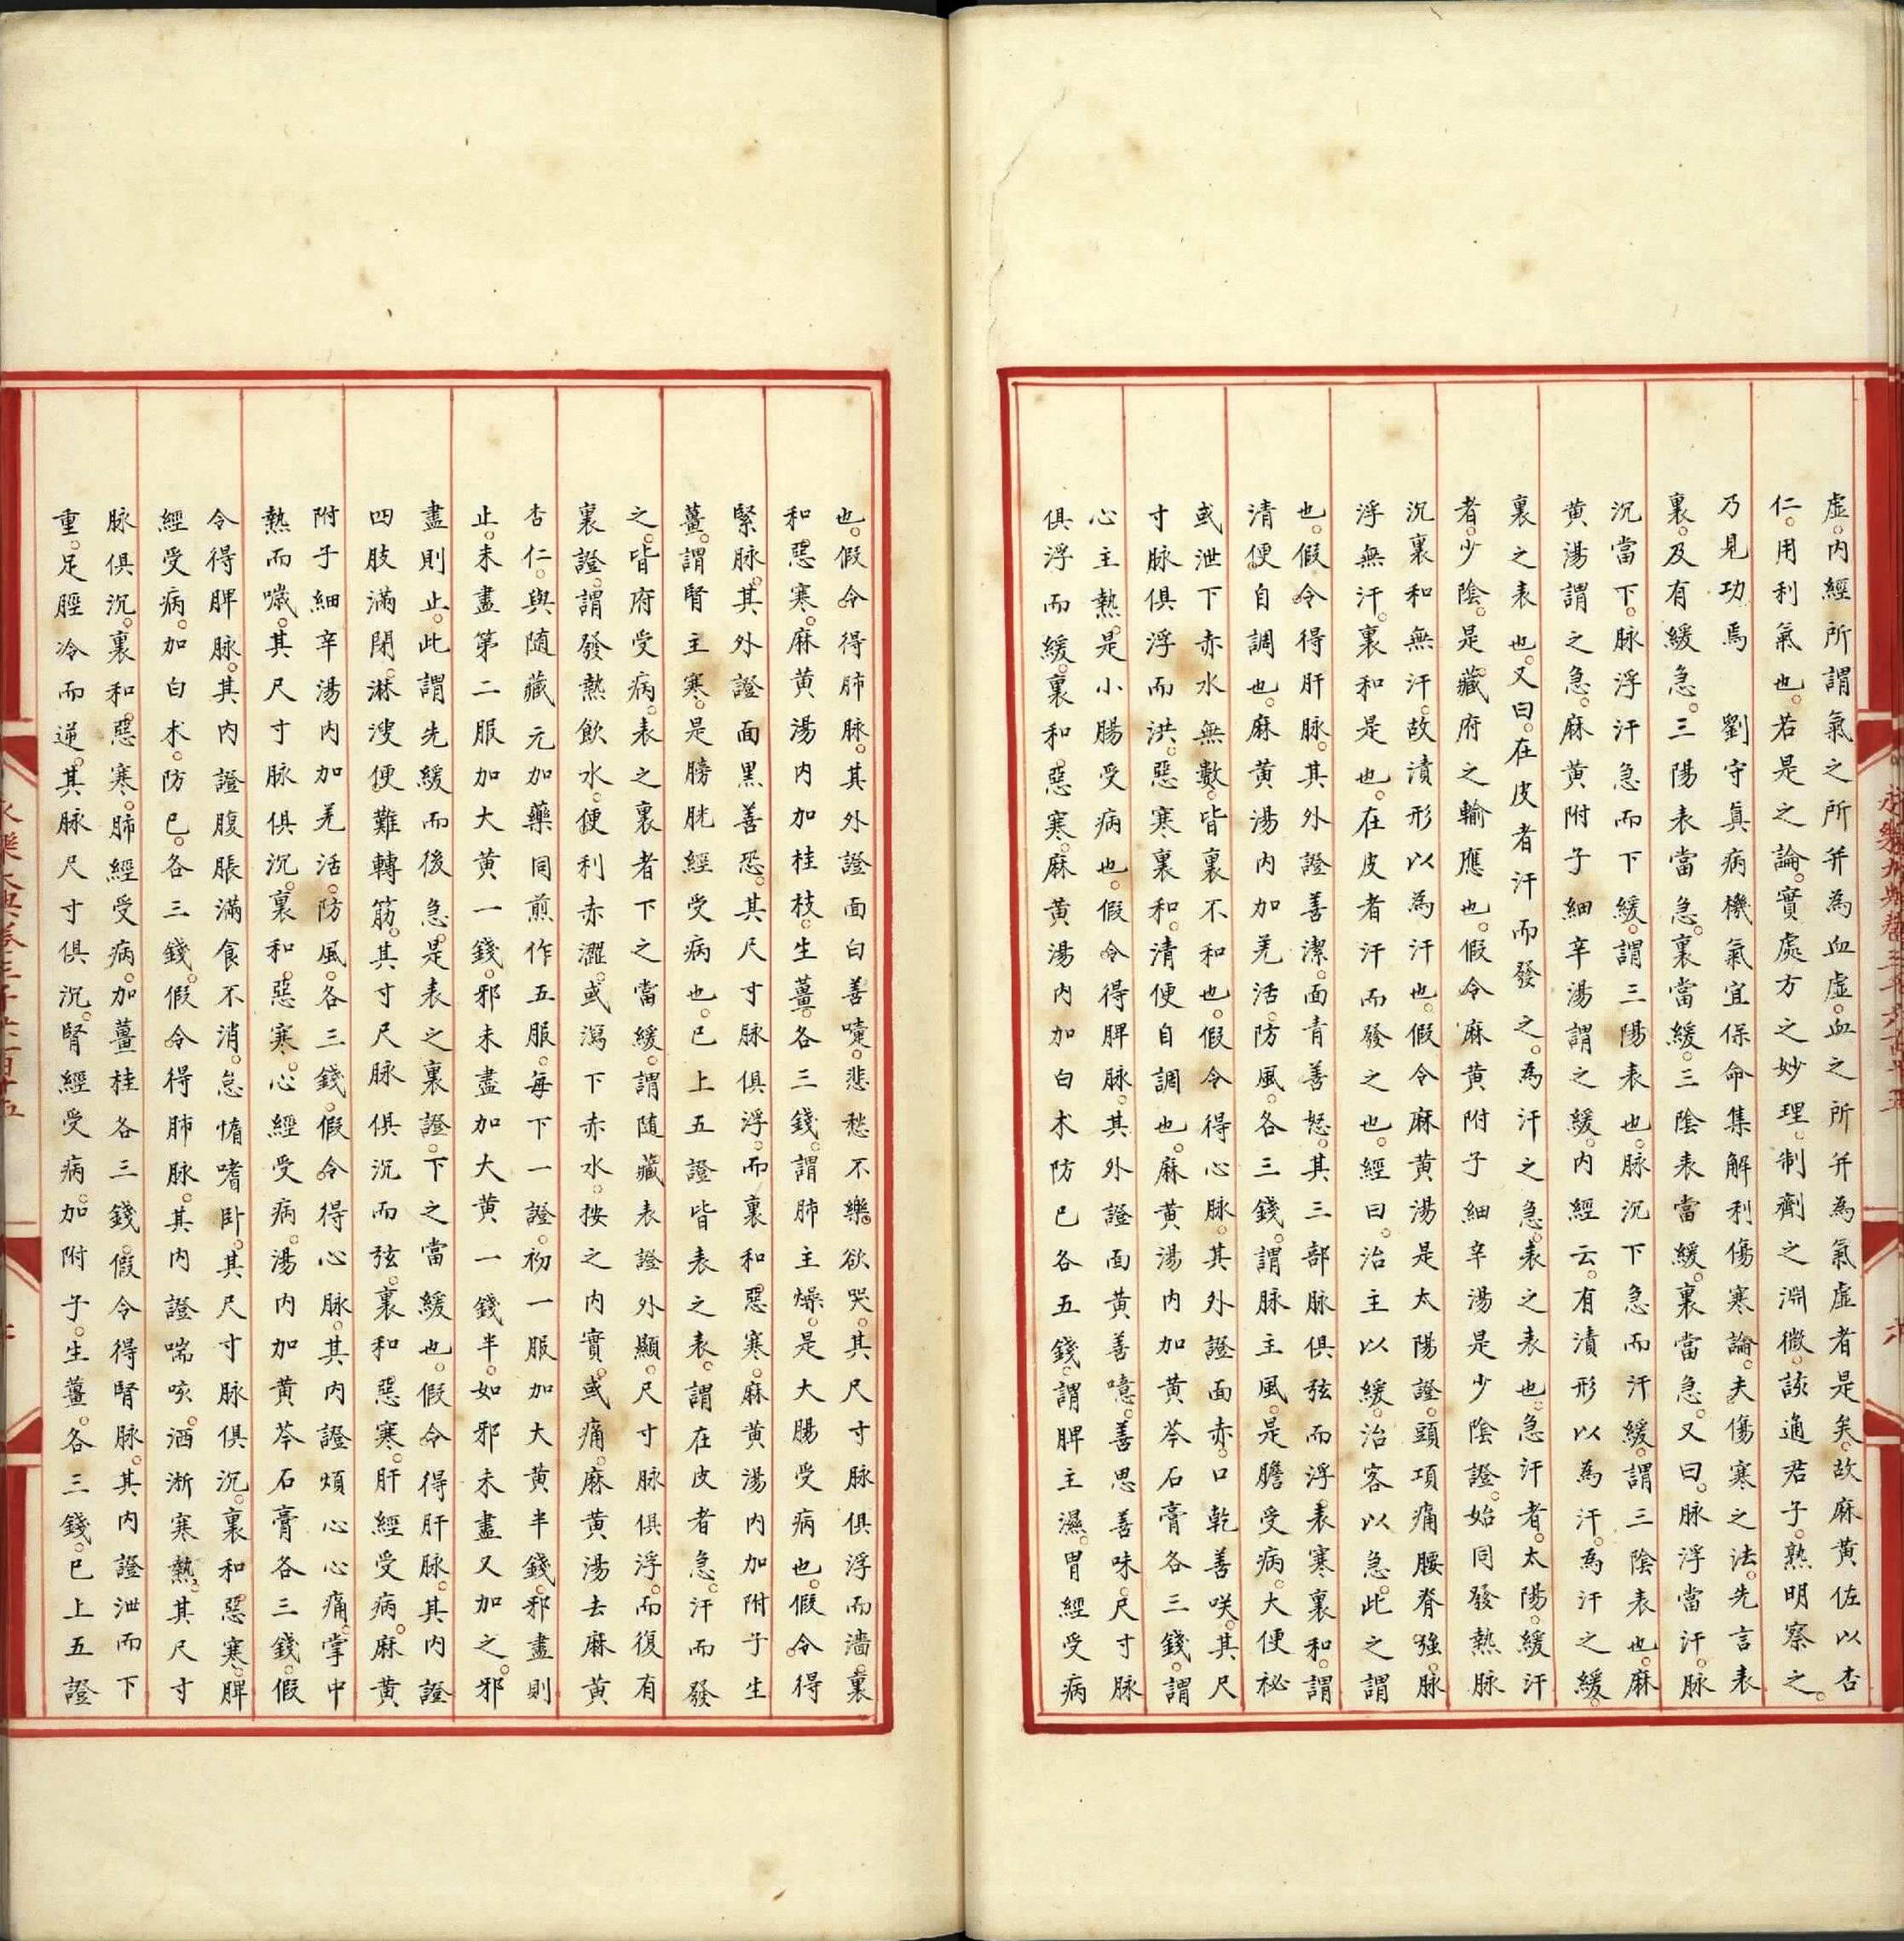 虛。内經所謂氣之所并為血虛。血之所并為氣虛者是矣。故麻黄佐以杏
仁。用利氣也。若是之論。實處方之妙理。制劑之淵微。該通君子。熟明察之。
乃見功焉 劉守真病機氣宜保命集解利傷寒論。夫傷寒之法。先言表
裏。及有緩急。三陽表當急。裏當緩。三陰表當緩。裏當急。又曰。脉浮當汗。脉
沉當下。脉浮汗急而下緩。謂三陽表也。脉沉下急而汗緩。謂三陰表也。麻
黄湯謂之急。麻黄附子細辛湯謂之緩。内經云。有漬形以為汗。為汗之緩。
裏之表也。又曰。在皮者汗而發之。為汗之急。表之表也。急汗者。太陽。緩汗
者。少陰。是藏府之輸應也。假令麻黄附子細辛湯是少陰證。始同發熱脉
沉裏和無汗。故漬形以為汗也。假令麻黄湯是太陽證。頭項痛腰脊強。脉
浮無汗。裏和是也。在皮者汗而發之也。經曰。治主以緩。治客以急。此之謂
也。假令得肝脉。其外證善潔。面青善怒。其三部脉俱弦而浮。表寒裏和。謂
清便自調也。麻黄湯内加羌活。防風。各三錢。謂脉主風。是膽受病。大便秘
或泄下赤水無數。皆裏不和也。假令得心脉。其外證面赤。口乾善咲。其尺
寸脉俱浮而洪。惡寒裏和。清便自調也。麻黄湯内加黄芩石膏各三錢。謂
心主熱。是小腸受病也。假令得脾脉。其外證面黄善噫。善思善味。尺寸脉
俱浮而緩。裏和惡寒。麻黄湯内加白术防已各五錢。謂脾主濕。胃經受病
也。假令得肺脉。其外證面白善嚏。悲愁不樂。欲哭。其尺寸脉俱浮而濇。裏
和。惡寒。麻黄湯内加桂枝。生薑。各三錢。謂肺主燥。是大腸受病也。假令得
緊脉。其外證面黑善恐。其尺寸脉俱浮。而裏和惡寒。麻黄湯内加附子生
薑。謂腎主寒。是膀胱經受病也。已上五證皆表之表。謂在皮者急汗而發
之。皆府受病。表之裏者下之當緩。謂随藏表證外顯。尺寸脉俱浮。而復有
裏證。謂發熱飲水。便利赤澀。或瀉下赤水。按之内實。或痛。麻黄湯去麻黄
杏仁。與随藏元加藥同煎作五服。每下一證。初一服加大黄半錢。邪盡則
止。未盡第二服加大黄一錢。邪未盡加大黄一錢半。如邪未盡又加之。邪
盡則止。此謂先緩而後急。是表之裏證。下之當緩也。假令得肝脉。其内證
四肢滿閉。淋溲便難轉筋。其寸尺脉俱沉而弦。裏和惡寒。肝經受病。麻黄
附子細辛湯内加羌活。防風。各三錢。假令得心脉。其内證煩心心痛。掌中
熱而噦。其尺寸脉俱沉。裏和。惡寒。心經受病。湯内加黄芩石膏各三錢。假
令得脾脉。其内證腹脹滿食不消。怠惰嗜卧。其尺寸脉俱沉。裏和。惡寒。脾
經受病。加白术。防已。各三錢。假令得肺脉。其内證喘咳。洒淅寒熱。其尺寸
脉俱沉。裏和。惡寒。肺經受病。加薑桂各三錢。假令得腎脉。其内證泄而下
重。足脛冷而逆。其脉尺寸俱沉。腎經受病。加附子。生薑。各三錢。已上五證